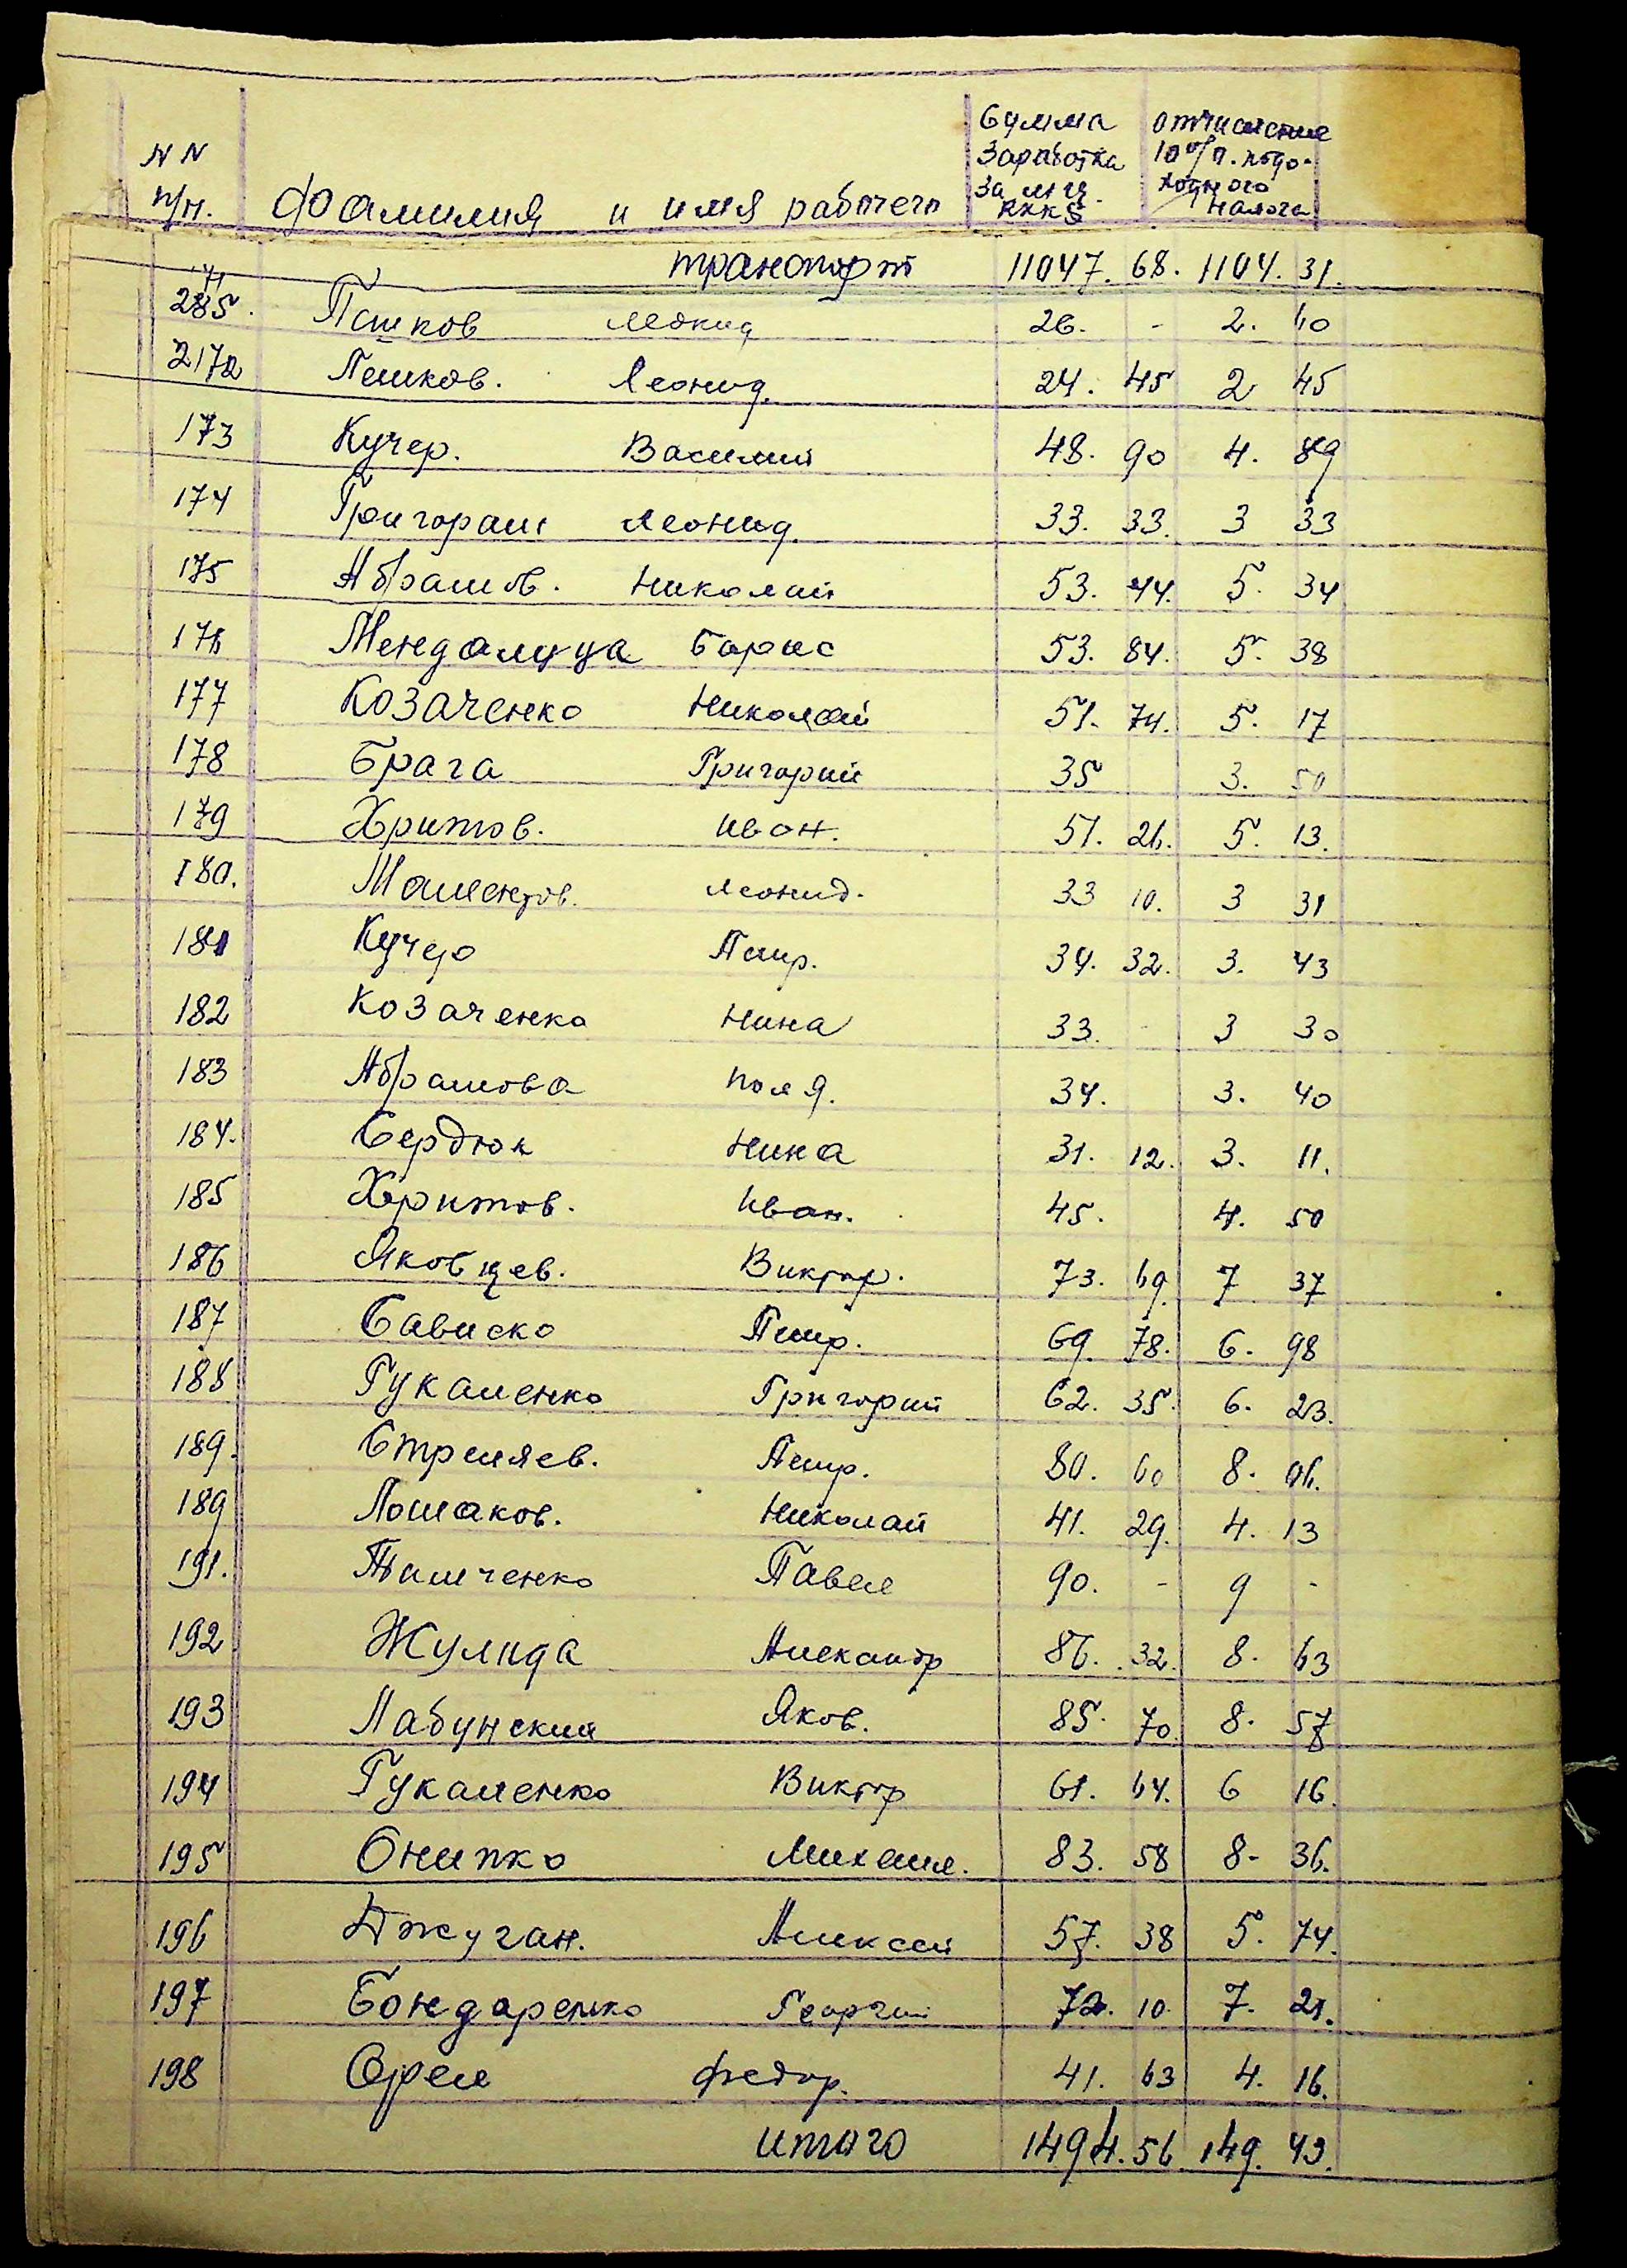 NN п/п. Фамилия и имя рабочего Сумма заработка за м-ц отчисление 10% п. подоходного налога
транспорт 11047. 68. 1104. 31.
285. Пашков Леонид 26. - 2. 60
2172 Пешков. Леонид. 24. 45 2 45
173 Кучер. Василий 48. 90 4. 89
174 Григораш Леонид. 33. 33. 3 33
175 Абрамов. Николай 53. 44. 5. 34
176 Мендалуца Борис 53. 84. 5. 38
177 Козаченко Николай 51. 74. 5. 17
178 Брага Григорий 35 3. 50
179 Хритов. Иван. 51. 26. 5. 13.
180. Маментов. Леонид. 33 10. 3 31
181 Кучер Петр. 34. 32. 3. 43
182 Козаченко Нина 33. - 3 30
183 Абрамова Поля. 34. 3. 40
184. Сердюк Нина 31. 12. 3. 11.
185 Хритов. Иван. 45. 4. 50
186 Яковцев. Виктор. 73. 69. 7 37
187 Сависко Петр. 69. 78. 6. 98
188 Гукаленко Григорий 62. 35. 6. 23.
189. Стриляев. Петр. 80. 60 8. 06.
189 Ломаков. Николай 41. 29. 4. 13
191. Тимченко Павел 90. - 9 -
192 Жулида Александр 86. 32. 8. 63
193 Лабунский Яков. 85. 70 8. 57
194 Гукаленко Виктор 61. 64. 6 16.
195 Онипко Михаил. 83. 58 8- 36.
196 Джуган. Алексей 57. 38 5. 74.
197 Бондаренко Георгий 72. 10. 7. 21.
198 Орел Федор. 41. 63 4. 16.
итого 1494. 56 149. 43.